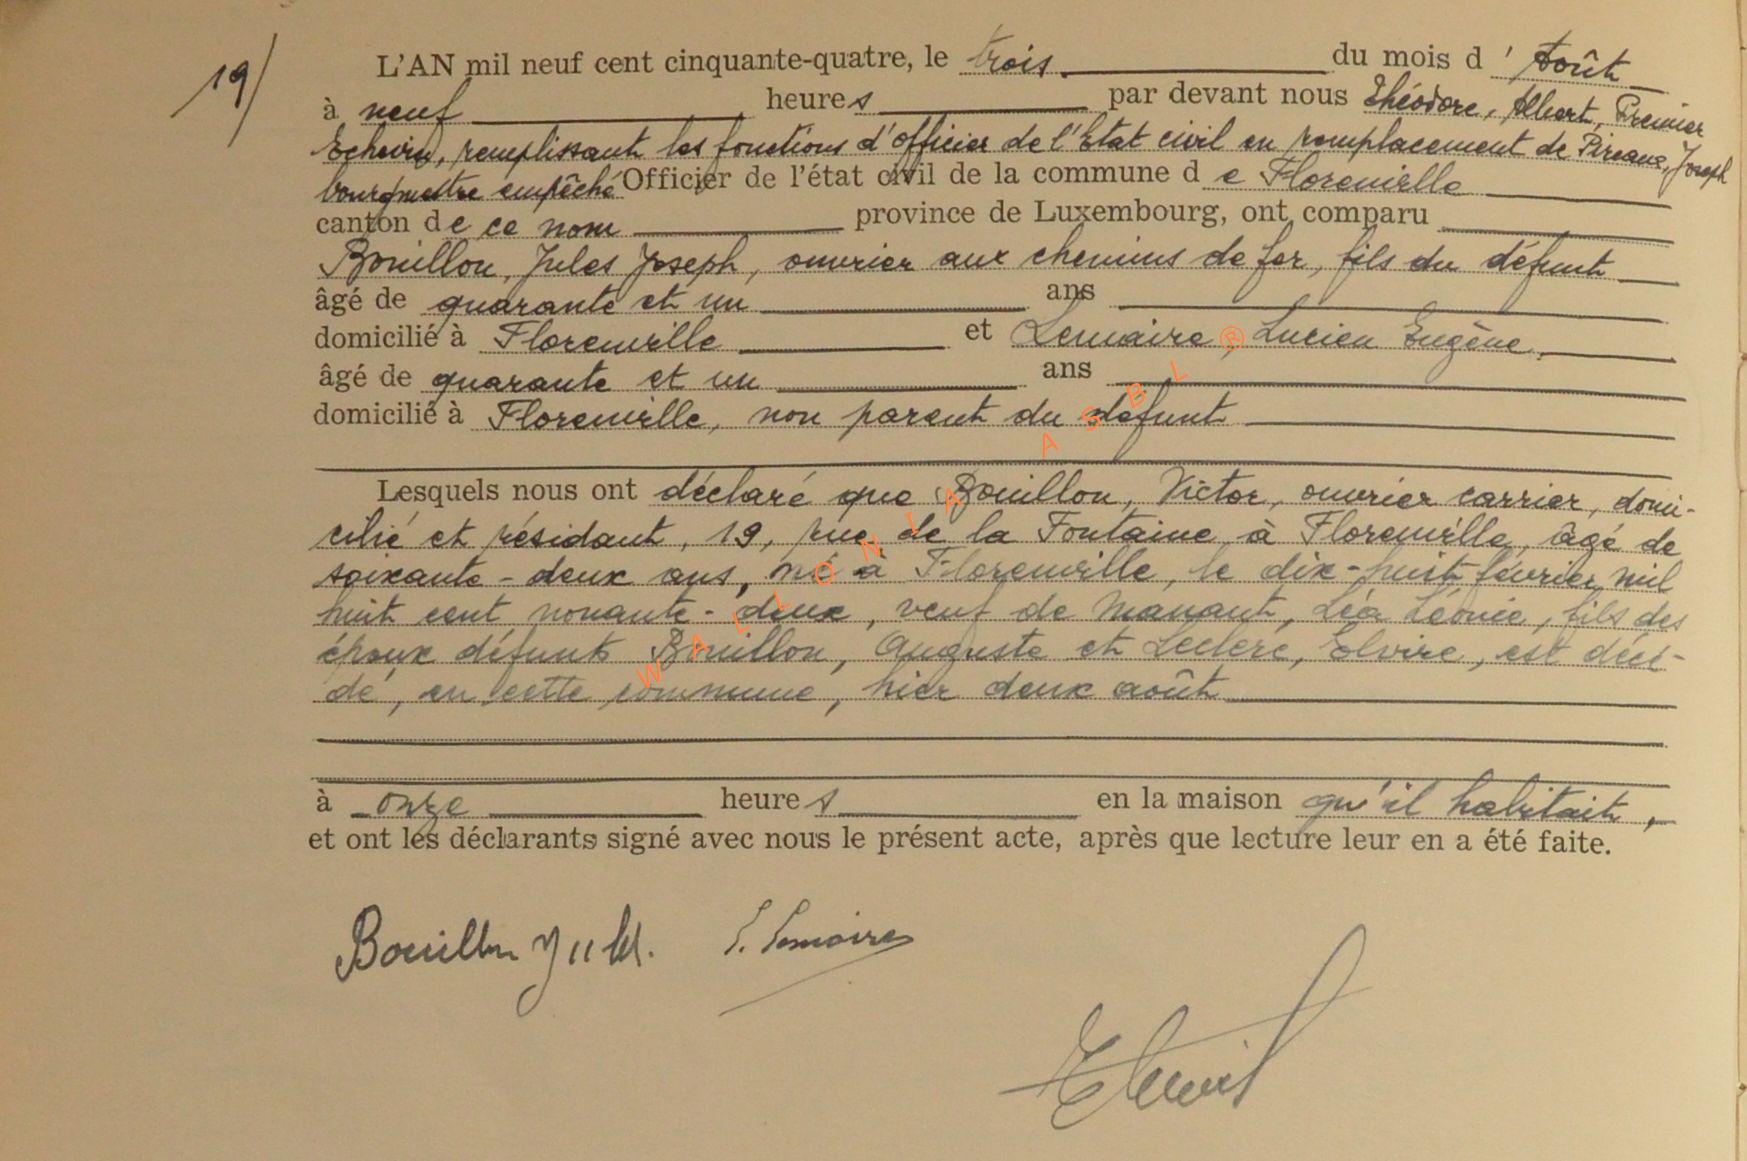 19/
L'AN mil neuf cent cinquante-quatre, le trois du mois d'Août
à neuf heures par devant nous Théodore, Albert, Premier
Echevin, remplissant les fonctions d'Officier de l'Etat civil en remplacement de Joseph
bourgmestre empêché Officier de l'état civil de la commune de Florenville
canton de ce nom province de Luxembourg, ont comparu
Bouillon, Jules Joseph, ouvrier aux chemins de fer, fils du défunt
âgé de quarante et un ans
domicilié à Florenville et Lemaire, Lucien Eugène,
âgé de quarante et un ans
domicilié à Florenville, non parent du défunt
Lesquels nous ont déclaré que Bouillon, Victor, ouvrier carrier, domi-
cilié et résidant, 19, rue de la Fontaine à Florenville, âgé de
soixante-deux ans, né à Florenville, le dix-huit février mil
huit cent nonante-deux, veuf de Manant, Léa Léonie, fils des
époux défunts Bouillon, Auguste et Leclere, Elvire, est décé-
dé, en cette commune, hier deux août
à onze heures en la maison qu'il habitait,
et ont les déclarants signé avec nous le présent acte, après que lecture leur en a été faite.
Bouillon Jules. L. Lemaire
WALLONIA ASBL ®